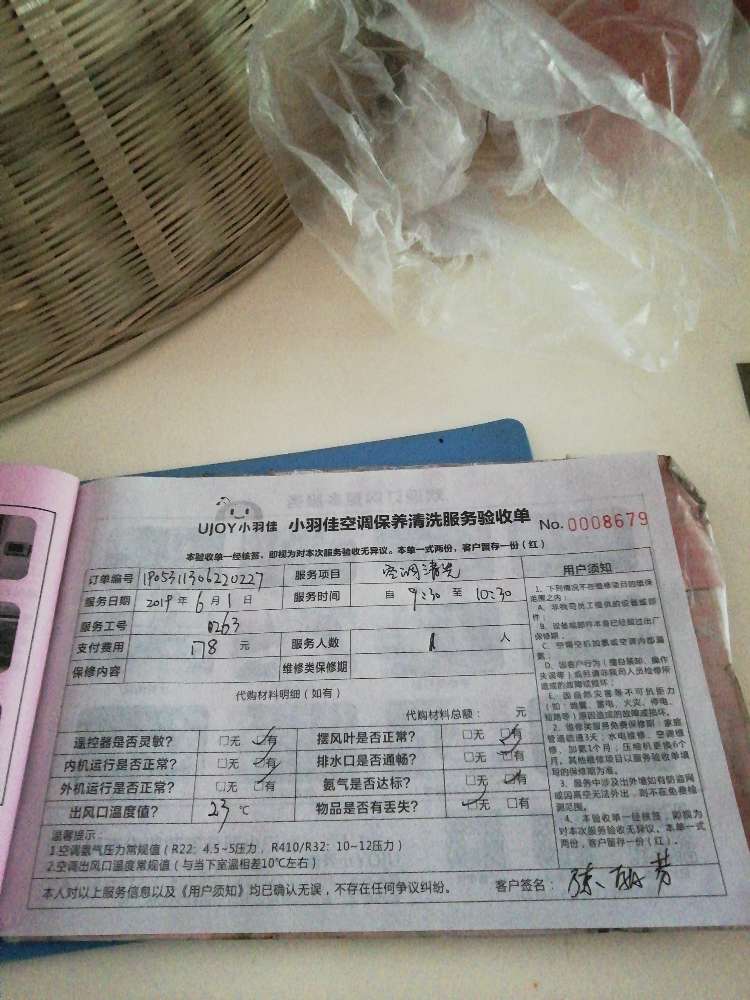 UJOY小羽佳 小羽佳空调保养清洗服务验收单 No.0008679
本验收单一经核签，即视为对本次服务验收无异议。本单一式两份，客户留存一份（红）
订单编号 1905311306220227 服务项目 空调清洗
服务日期 2019 年 6 月 1 日 服务时间 自 9:30 至 10:30
服务工号 0263
支付费用 178 元 服务人数 1 人
保修内容 维修类保修期
代购材料明细（如有）
代购材料总额： 元
遥控器是否灵敏？ □无 □有 摆风叶是否正常？ □无 □有
内机运行是否正常？ □无 □有 排水口是否通畅？ □无 □有
外机运行是否正常？ □无 □有 氨气是否达标？ □无 □有
出风口温度值？ 23 ℃ 物品是否有丢失？ □无 □有
温馨提示：
1.空调氨气压力常规值（R22：4.5~5压力，R410/R32：10-12压力）
2.空调出风口温度常规值（与当下室温相差10℃左右）
本人对以上服务信息以及《用户须知》均已确认无误，不存在任何争议纠纷。 客户签名：
用户须知
1、下列情况不在维修项目的维保
范围之内：
A、非我司员工提供的设备或部
件；
B、设备或部件本身已经超过出厂
保修期；
C、空调空机加氨或空调内部漏
氨；
D、因客户行为（擅自拆卸、操作
失误等）或别请非我司人员检修所
造成的故障或损坏；
E、因自然灾害等不可抗拒力
（如：地震、雷电、火灾、停电、
短路等）原因造成的故障或损坏。
2、维修类服务免费保修期：家庭
管道疏通3天；水电维修、空调维
修、加氨1个月；压缩机更换6个
月，其他维修项目以服务验收单填
写的保修期为准。
3、服务中涉及出外墙如有防盗网
或因高空无法外出，则不在免费检
测范围。
4、本验收单一经核签，即视为
对本次服务验收无异议。本单一式
两份，客户留存一份（红）。